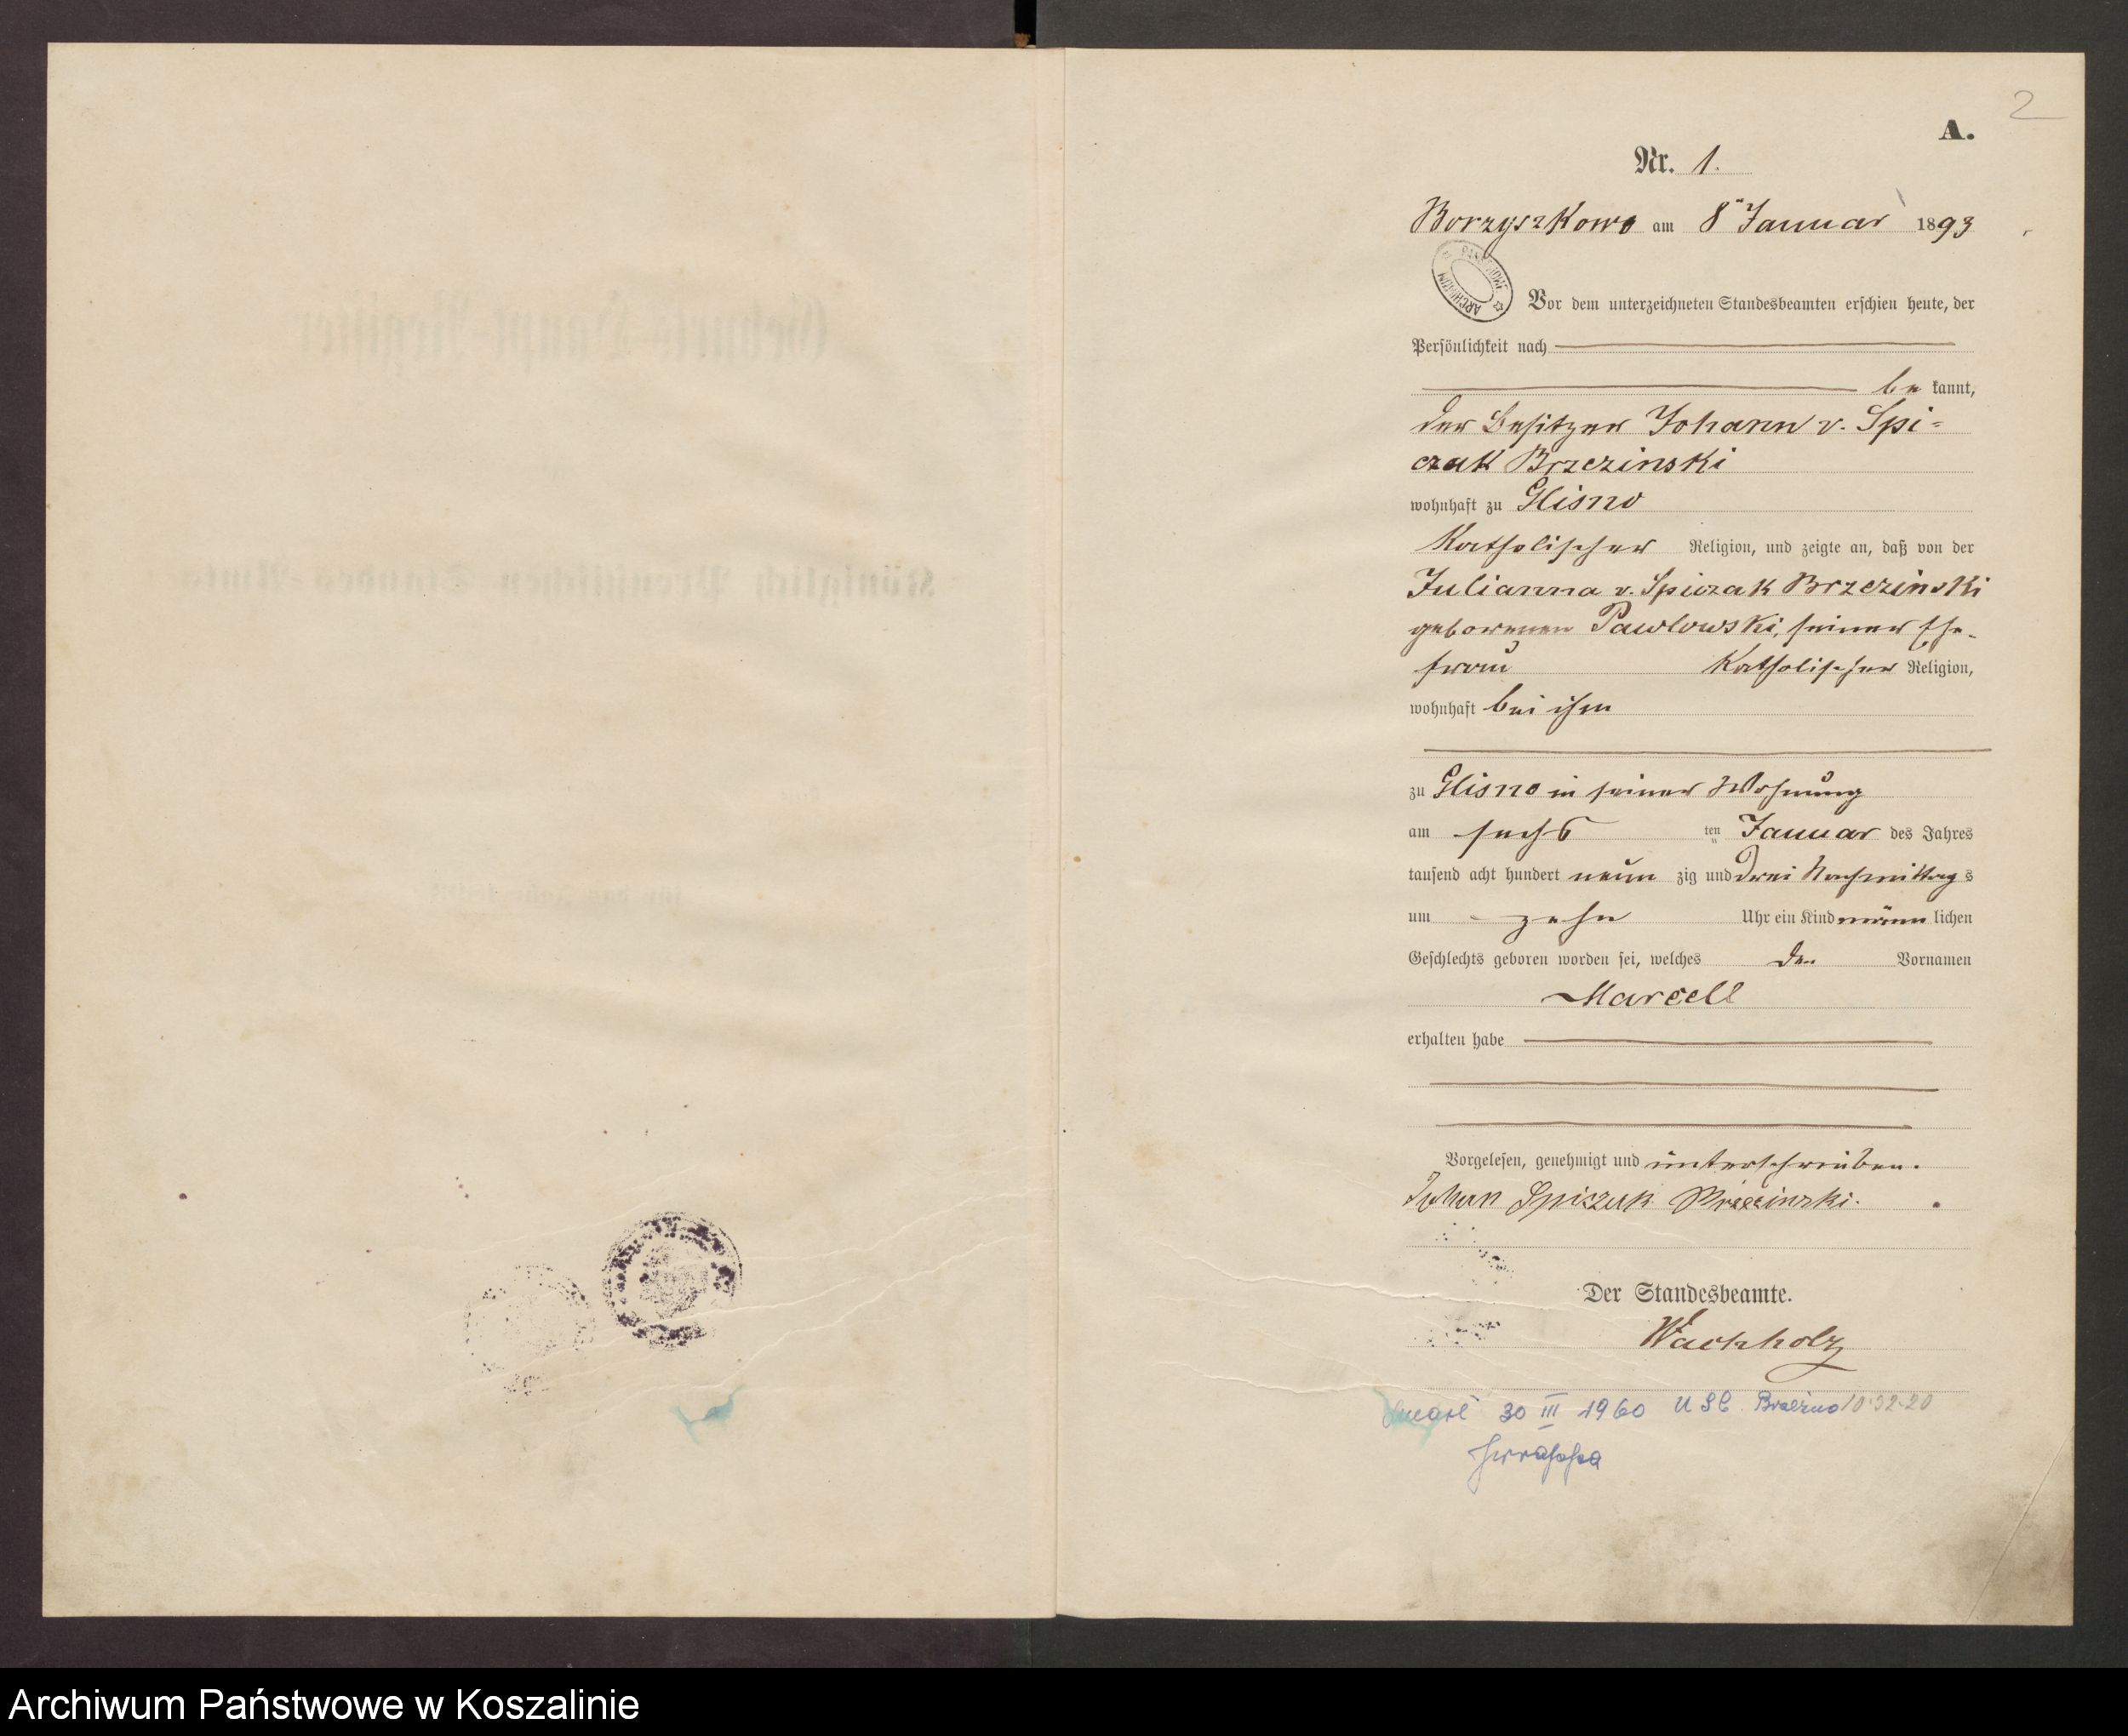 2
A.
Nr. 1.
Borzyszkowo am 8ten Januar 1893
ARCHIWUM PAŃSTWOWE
Vor dem unterzeichneten Standesbeamten erschien heute, der
Persönlichkeit nach
be kannt,
der Besitzer Johann v. Spi=
czak Brzezinski
wohnhaft zu Glisno
Katholischer Religion, und zeigte an, daß von der
Julianna v. Spiczak Brzezinski
geborenen Pawlowski, seiner Ehe-
frau Katholischer Religion,
wohnhaft bei ihm
zu Glisno in seiner Wohnung
am sechs ten Januar des Jahres
tausend acht hundert neun zig und drei Nachmittags
um zehn Uhr ein Kind männ lichen
Geschlechts geboren worden sei, welches den Vornamen
Marcell
erhalten habe
Vorgelesen, genehmigt und unterschrieben.
Johan Spiczak Brzezinski.
Der Standesbeamte.
Wachholz
30 III 1960 USC Brzeźno
Geburts-Haupt-Register
Königlich Preußischen Standes-Amts
für das Jahr
Archiwum Państwowe w Koszalinie